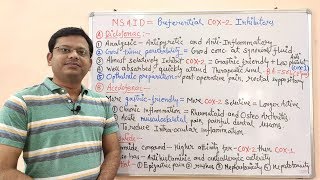 NSAID = Preferential COX-2 Inhibitors
Diclofenac :-
Analgesic - Antipyretic and Anti-Inflammatory
Good tissue penetrability = Good conc at synovial fluid
Almost selectively inhibit COX-2 = Gastric friendly + Low
Well absorbed + quickly attend Therapeutic level
Ophthalmic preparation = post operative pain, rectal suppository
Aceclofenac :-
More gastric-friendly = More COX-2 Selective = Longer Active
Chronic Inflammation = Rheumatoid and Osteo Arthritis
Acute musculoskeletal pain, painful dental lesions
To reduce Intra-ocular inflammation
compound - Higher affinity for - COX-2 than COX-1
has - Antihistaminic and
Epigastric pain Hepatotoxicity